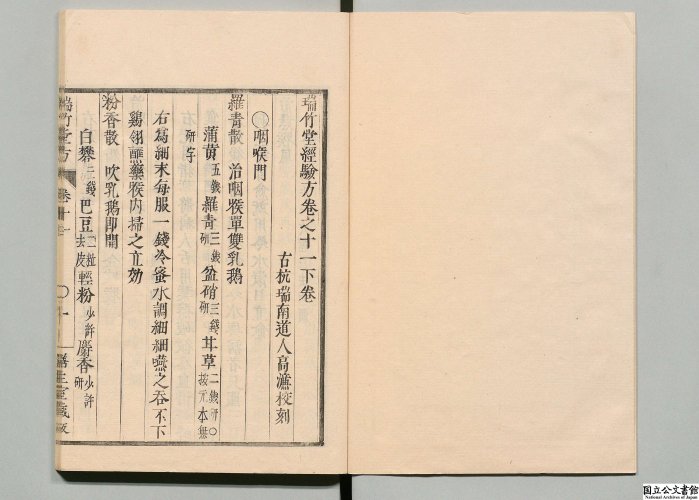 瑞竹堂經驗方卷之十一下卷
古杭瑞南道人高濂校刻
〇咽喉門
羅青散　治咽喉單雙乳鵝
蒲黄五錢羅青三錢研盆硝三錢研甘草二錢研〇按元本無研字
右爲細末每服一錢冷蜜水調細細嚥之吞不下
鷄翎蘸藥喉内掃之立効
粉香散　吹乳鵝即開
白礬二錢巴豆二粒去皮輕粉少許麝香少許研
瑞竹堂方
卷十一
〇十
藏板
国立公文書館
National Archives of Japan